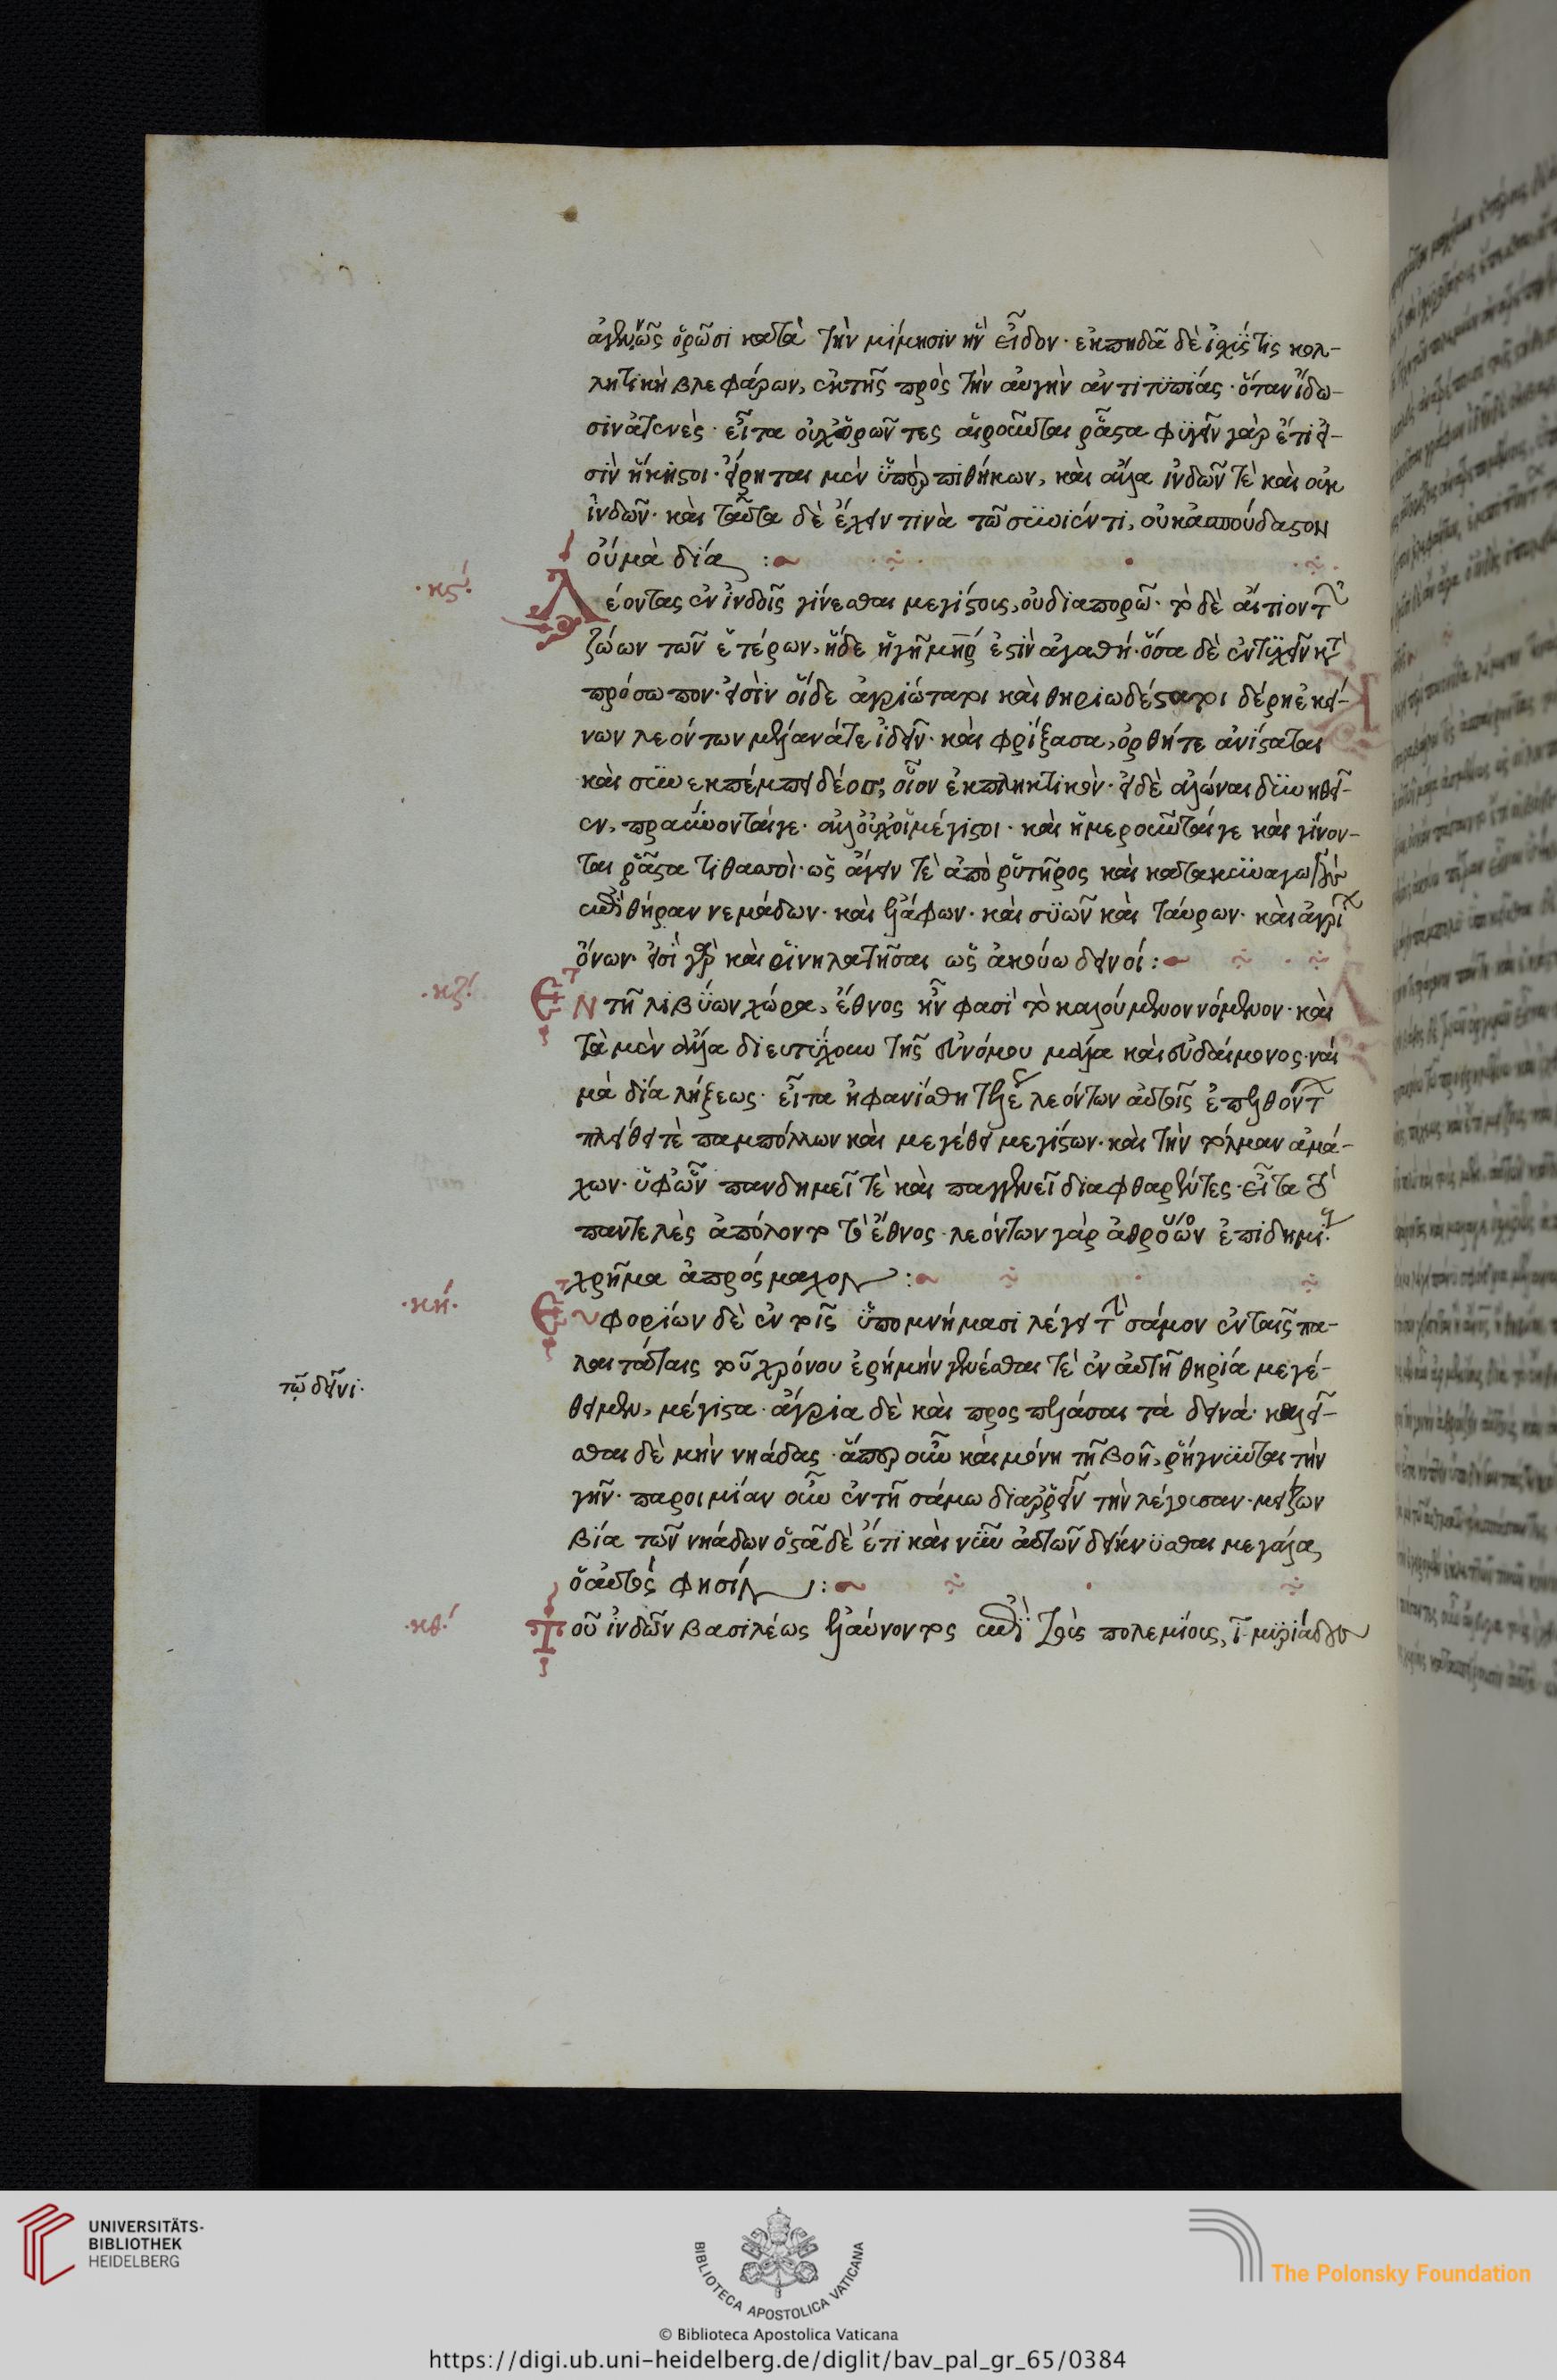 ἀγενῶς ὁρῶσι κατὰ τὴν μίμησιν ἣν εἶδον· ἐκπηδᾶ δὲ ἰχίς τις κολ-
λητικὴ βλεφάρων, ἐκ τῆς πρὸς τὴν αὐγὴν ἀντιτυπίας· ὅταν ἴδω-
σιν ἀτενὲς· εἶτα οὐχ ὁρῶντες αἱροῦνται ῥᾶστα φυγεῖν γὰρ ἔτι εἰ-
σὶν ἥκιστοι· εἴρηται μὲν ὑπὲρ πιθήκων, καὶ ἄλλα ἰνδῶν τὲ καὶ οὐκ
ἰνδῶν· καὶ ταῦτα δὲ ἔχειν τινὰ τῶ συνιέντι, οὐκ ἀσπούδαστον
οὐ μὰ δία :~
·κϛ΄· Λέοντας ἐν ἰνδοῖς γίνεσθαι μεγίστους, οὐ διαπορῶ· τὸ δὲ αἴτιον τῶν
ζώων τῶν ἑτέρων, ἥδε ἡ γῆ μήτηρ ἐστὶν ἀγαθή· ὅσα δὲ ἐντυχεῖν κατὰ
πρόσωπον· εἰσὶν οἵδε ἀγριώτατοι καὶ θηριωδέστατοι δέρη ἐκεί-
νων λεόντων μέλαινά τε ἰδεῖν· καὶ φρίξασα, ὀρθή τε ἀνίσταται
καὶ συνεκπέμπει δέος, οἷον ἐκπληκτικὸν· εἰ δὲ ἁλῶναι δυνηθεῖ-
εν, πραΰνονταί γε· ἀλλ' οὐχ οἱ μέγιστοι· καὶ ἡμεροῦνταί γε καὶ γίνον-
ται ῥᾶστα τιθασοὶ· ὡς ἄγειν τὲ ἀπὸ ῥυτῆρος καὶ κατακυναγωγεῖν
ἐπὶ θήραν νεμάδων· καὶ ἐλάφων· καὶ συῶν καὶ ταύρων· καὶ ἀγρίων
ὄνων· εἰσὶ γὰρ καὶ ῥινηλατῆσαι ὡς ἀκούω δεινοί :~
·κζ΄· Ἐν τῆ λιβύων χώρα, ἔθνος ἦν φασὶ τὸ καλούμενον νόμενον· καὶ
τὰ μὲν ἄλλα διευτύχουν τῆς εὐνόμου μάλα καὶ εὐδαίμονος· ναὶ
μὰ δία λήξεως· εἶτα ἠφανίσθη τελέως λεόντων αὐτοῖς ἐπελθόντων
πλήθει τὲ παμπόλλων καὶ μεγέθει μεγίστων· καὶ τὴν τόλμαν ἀμά-
χων· ὑφ' ὧν πανδημεῖ τὲ καὶ παγγενεῖ διαφθαρέντες· εἶτα τὸ
παντελὲς ἀπόλοντο τὸ ἔθνος· λεόντων γὰρ ἀθρόων ἐπιδημία·
χρῆμα ἀπρόσμαχον :~
·κη΄· Εὐφορίων δὲ ἐν τοῖς ὑπομνήμασι λέγει τὴν σάμον ἐν ταῖς πα-
λαιτάταις τοῦ χρόνου ἐρήμην γενέσθαι τὲ ἐν αὐτῆ θηρία μεγέ-
τῶ δεῖνι·
θει μὲν, μέγιστα· ἄγρια δὲ καὶ προσπελάσαι τὰ δεινά· καλεῖ-
σθαι δὲ μὴν νηάδας· ἅπερ οὖν καὶ μόνη τῆ βοῆ, ῥήγνυνται τὴν
γῆν· παροιμίαν οὖν ἐν τῆ σάμω διαῤῥεῖν τὴν λέγουσαν· μεῖζον
βία τῶν νηάδων ὀστᾶ δὲ ἔτι καὶ νῦν αὐτῶν δείκνυσθαι μεγάλα,
ὁ αὐτός φησίν :~
·κθ΄· Τοῦ ἰνδῶν βασιλέως ἐλαύνοντος ἐπὶ τοὺς πολεμίους, ι μυριάδες
UNIVERSITÄTS-
BIBLIOTHEK
HEIDELBERG
BIBLIOTECA APOSTOLICA VATICANA
The Polonsky Foundation
© Biblioteca Apostolica Vaticana
https://digi.ub.uni-heidelberg.de/diglit/bav_pal_gr_65/0384